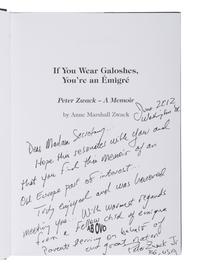 If You Wear Galoshes,
You're an Émigré
Peter Zwack – A Memoir
by Anne Marshall Zwack
June 2012
Washington DC
Dear Madam Secretary,
Hope this resonates with you and
that you find this memoir of an
Old Europe part of interest.
Truly enjoyed and was honored
meeting you. With warmest regards
from a fellow child of émigré
Parents serving on behalf of
our great nation
Peter Zwack Jr
BG, USA
AB OVO